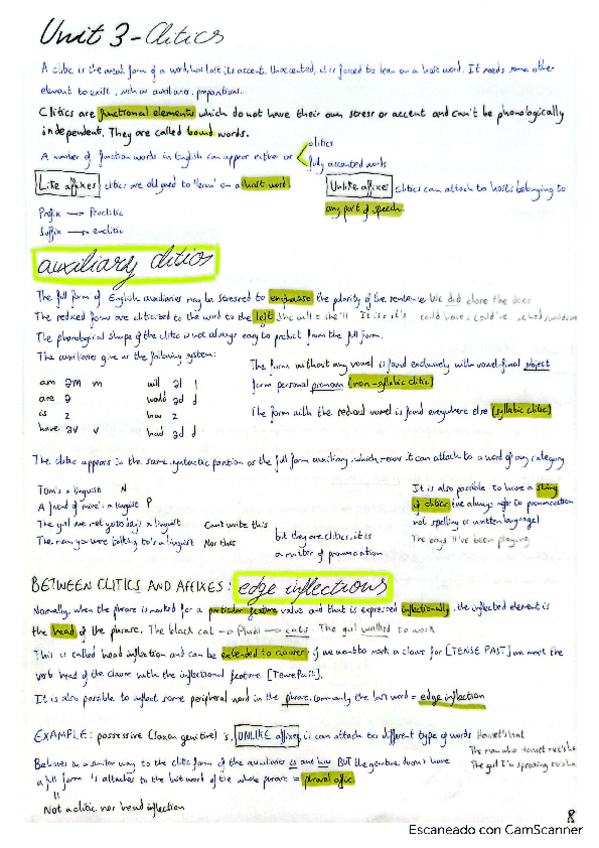 Unit 3 - Clitics
A clitic is the weak form of a word has lost its accent. Unaccented, it is forced to lean on a host word. It needs some other
element to exist, such as auxiliaries, prepositions...
Clitics are functional elements which do not have their own stress or accent and can't be phonologically
independent. They are called bound words.
A number of function words in English can appear either as
clitics
fully accented words
Like affixes clitics are allowed to 'lean' on a host word.
Unlike affixes clitics can attach to hosts belonging to
any part of speech.
Prefix → Proclitic
Suffix → enclitic
auxiliary clitics
The full form of English auxiliaries may be stressed to emphasise the polarity of the sentence We did close the door
The reduced forms are cliticised to the word to the left. She will = she'll It is = it's could have = could've
The phonological shape of the clitic is not always easy to predict from the full form.
The auxiliaries give us the following system:
am əm m will əl l
are ə would əd d
is z has z
have əv v had əd d
The forms without any vowel is found exclusively with vowel-final object
form personal pronoun (non-syllabic clitic)
The form with the reduced vowel is found everywhere else (syllabic clitic)
The clitic appears in the same syntactic position as the full form auxiliary, which means it can attach to a word of any category
Tom's a linguist N
A friend of mine's a linguist P
The girl we met yesterday's a linguist Can't write this
The man you were talking to's a linguist Nor this
but they are clitics, it is
a matter of pronunciation
It is also possible to have a string
of clitics (we always refer to pronunciation
not spelling or written language)
The boys'll've been playing
BETWEEN CLITICS AND AFFIXES: edge inflections
Normally, when the phrase is marked for a particular feature value and that is expressed inflectionally, the inflected element is
the head of the phrase. The black cat → Plural → cats. The girl walked to work
This is called head inflection and can be extended to clauses if we want to mark a clause for [TENSE PAST] we mark the
verb head of the clause with the inflectional feature [Tense Past].
It is also possible to inflect some peripheral word in the phrase, commonly the last word = edge inflection
EXAMPLE: possessive (Saxon genitive) 's, UNLIKE affixes, it can attach to different type of words Harriet's hat
The man who Harriet met's
The girl I'm speaking to's
Behaves in a similar way to the clitic form of the auxiliaries is and has BUT the genitive doesn't have
a full form 's attaches to the last word of the whole phrase = phrasal affix
Not a clitic nor head inflection
8
Escaneado con CamScanner